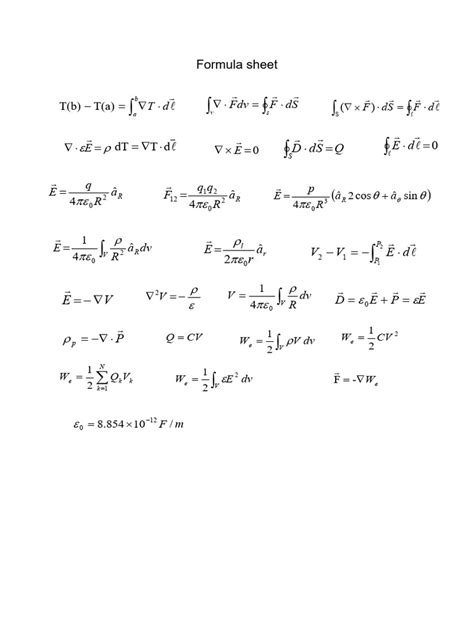 Formula sheet
T(b) − T(a) = ∫ₐᵇ ∇T · dℓ⃗    ∫ᵥ ∇ · F⃗dv = ∮ₛ F⃗ · dS⃗    ∫_S (∇ × F⃗) · dS⃗ = ∮_l F⃗ · dℓ⃗
∇ · εE⃗ = ρ    dT = ∇T · dℓ⃗    ∇ × E⃗ = 0    ∮_S D⃗ · dS⃗ = Q    ∮_ℓ E⃗ · dℓ⃗ = 0
E⃗ = q / 4πε₀R² â_R    F⃗₁₂ = q₁q₂ / 4πε₀R² â_R    E⃗ = p / 4πε₀R³ (â_R 2 cos θ + â_θ sin θ)
E⃗ = 1 / 4πε₀ ∫_V ρ / R² â_R dv    E⃗ = ρ_l / 2πε₀r â_r    V₂ − V₁ = −∫_{P₁}^{P₂} E⃗ · dℓ⃗
E⃗ = −∇V    ∇²V = − ρ / ε    V = 1 / 4πε₀ ∫_V ρ / R dv    D⃗ = ε₀E⃗ + P⃗ = εE⃗
ρ_p = −∇ · P⃗    Q = CV    W_e = 1 / 2 ∫_V ρV dv    W_e = 1 / 2 CV²
W_e = 1 / 2 ∑_{k=1}^{N} Q_kV_k    W_e = 1 / 2 ∫_V εE² dv    F⃗ = -∇W_e
ε₀ = 8.854 × 10⁻¹² F / m